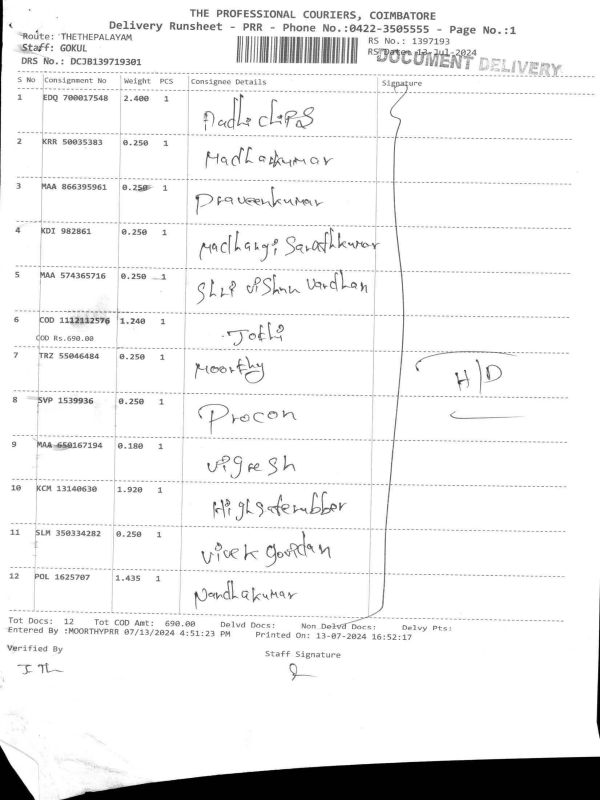 THE PROFESSIONAL COURIERS, COIMBATORE
Delivery Runsheet - PRR - Phone No.:0422-3505555 - Page No.:1
Route: THETHEPALAYAM
RS No.: 1397193
Staff: GOKUL
RS Date: 13-Jul-2024
DOCUMENT DELIVERY
DRS No.: DCJB139719301
S No Consignment No Weight PCS Consignee Details Signature
1 EDQ 700017548 2.400 1 Madhi chips
2 KRR 50035383 0.250 1 Madhankumar
3 MAA 866395961 0.250 1 Praveenkumar
4 KDI 982861 0.250 1 Madhangi Sarathkumar
5 MAA 574365716 0.250 1 Shri vishnu vardhan
6 COD 1112112576 1.240 1 Jothi
COD Rs.690.00
7 TRZ 55046484 0.250 1 Moorthy
H/D
8 SVP 1539936 0.250 1 Procon
9 MAA 650167194 0.180 1 vignesh
10 KCM 13140630 1.920 1 Highsterubber
11 SLM 350334282 0.250 1 vivek govindan
12 POL 1625707 1.435 1 Nandhakumar
Tot Docs: 12 Tot COD Amt: 690.00 Delvd Docs: Non Delvd Docs: Delvy Pts:
Entered By :MOORTHYPRR 07/13/2024 4:51:23 PM Printed On: 13-07-2024 16:52:17
Verified By
Staff Signature